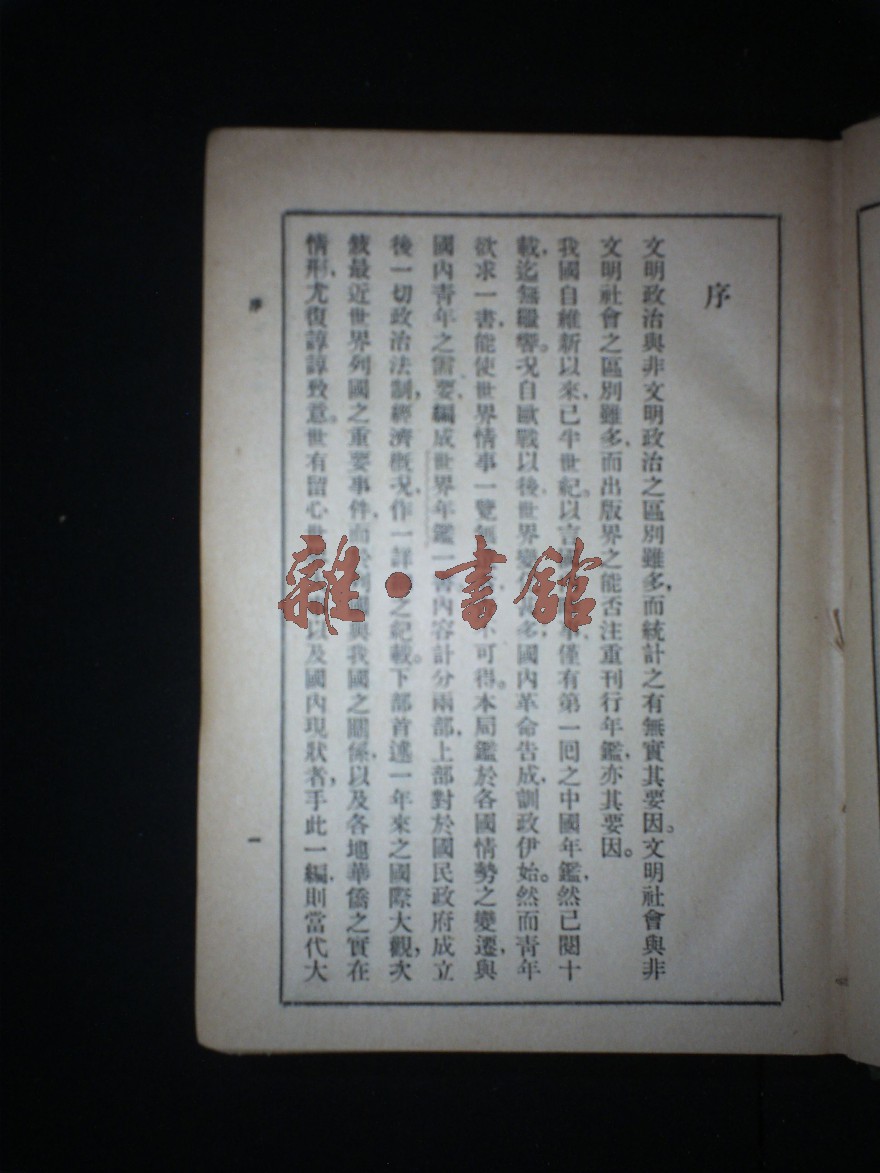 序
文明政治與非文明政治之區別雖多，而統計之有無實其要因。文明社會與非
文明社會之區別雖多，而出版界之能否注重刊行年鑑，亦其要因。
我國自維新以來，已半世紀。以言僅有第一回之中國年鑑，然已閱十
載，迄無繼響。況自歐戰以後，世界變多，國內革命告成，訓政伊始。然而青年
欲求一書，能使世界情事一覽可得。本局鑑於各國情勢之變遷，與
國內青年之需要，編成世界年鑑一書，內容計分兩部，上部對於國民政府成立
後一切政治法制，經濟概況，作一詳之紀載。下部首述一年來之國際大觀，次
敍最近世界列國之重要事件，而於列與我國之關係，以及各地華僑之實在
情形，尤復諄諄致意。世有留心世以及國內現狀者，手此一編，則當代大
序
一
雜·書館